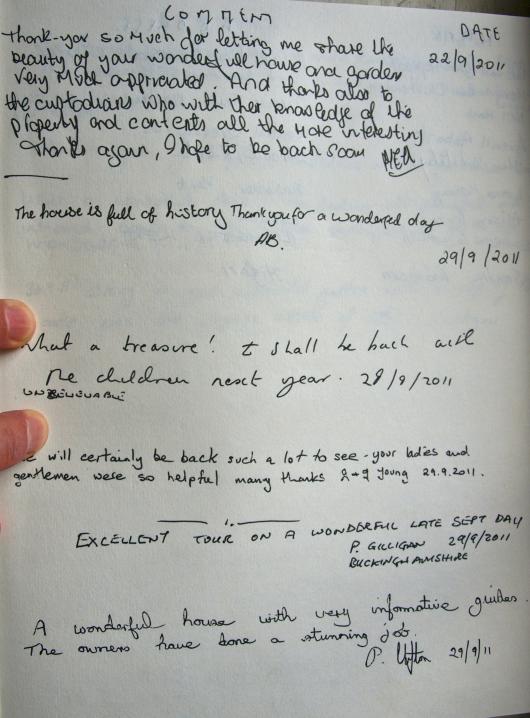 COMMEN
DATE
Thank-you so much for letting me share the
22/9/2011
beauty of your wonderfull house and garden
very much appriciated. And thanks also to
the custodians who with ther knowledge of the
property and contents all the more interesting
Thanks again, I hope to be back soon
The house is full of history Thank you for a wonderful day
AB.
29/9/2011
What a treasure! I shall be back with
the children next year. 28/9/2011
UNBELIEVABLE
will certainly be back such a lot to see - your ladies and
gentlemen were so helpful many thanks Young 29.9.2011.
EXCELLENT TOUR ON A WONDERFUL LATE SEPT DAY
P. GILLIGAN 29/9/2011
BUCKINGHAMSHIRE
A wonderful house with very informative guides.
The owners have done a stunning job.
P. 29/9/11